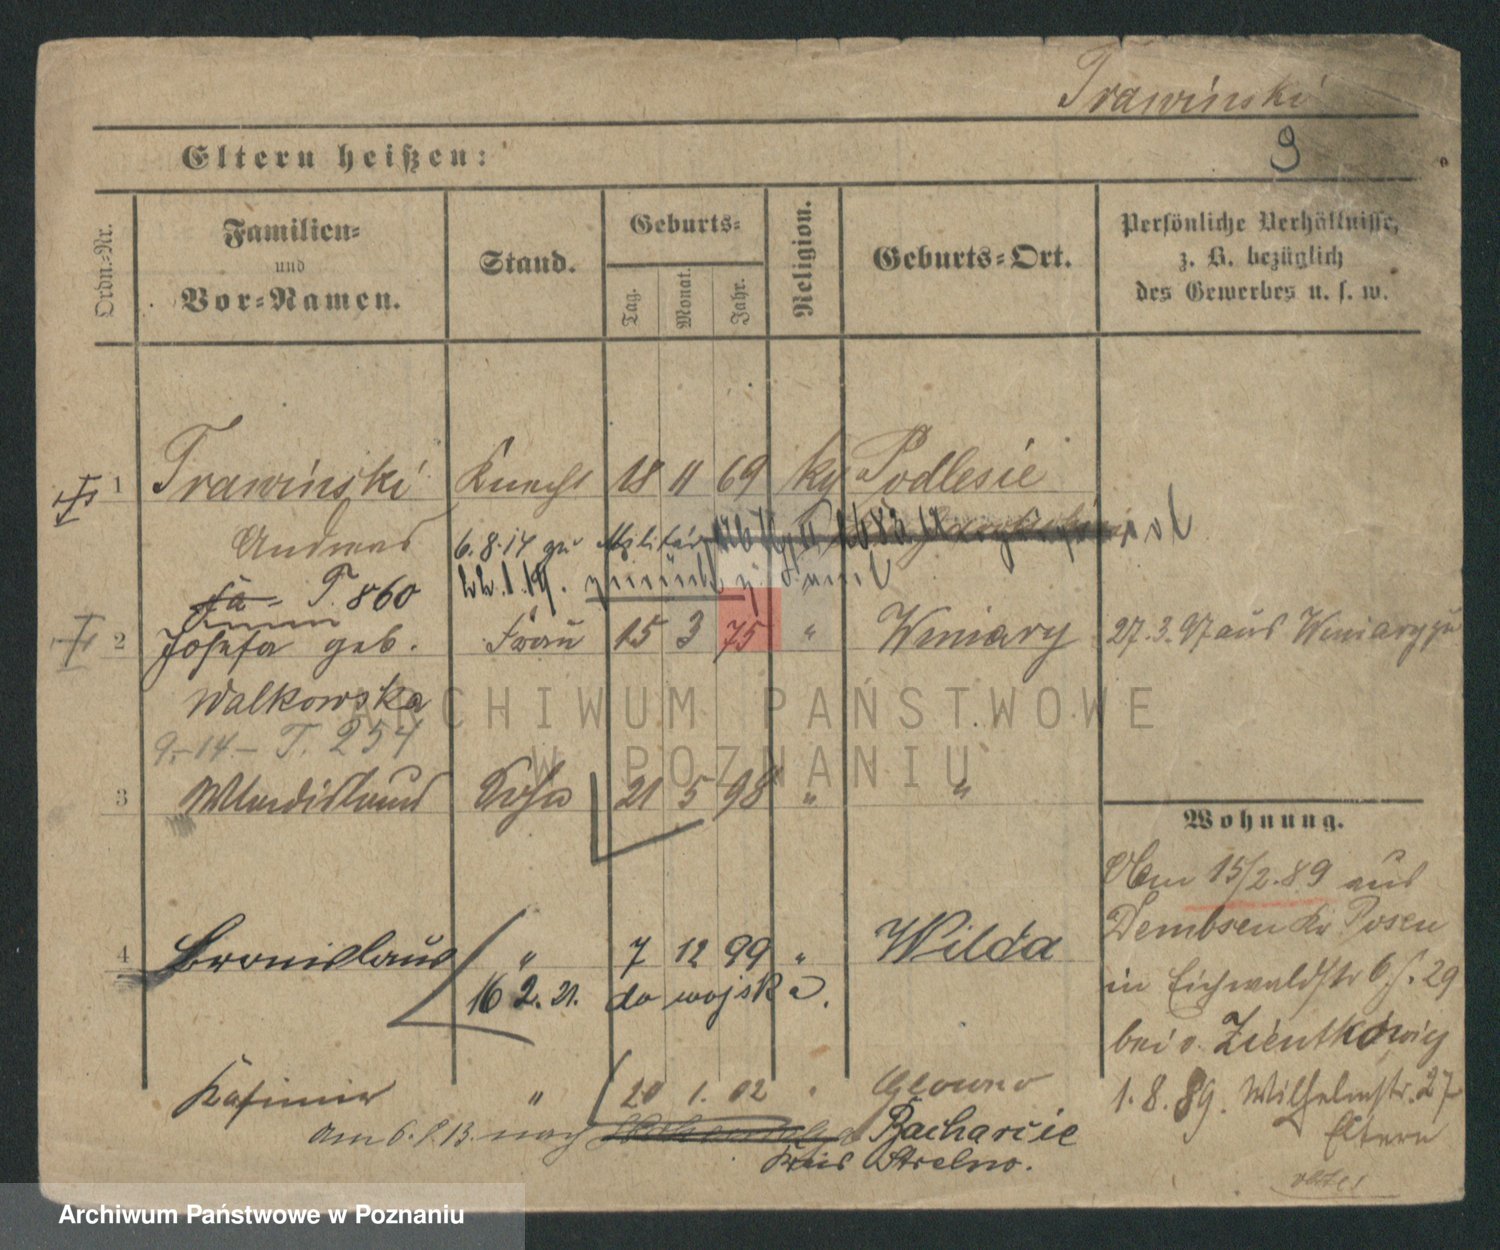 Trawinski
9
Eltern heißen:
Ordn.-Nr.
Familien-
und
Vor-Namen.
Stand.
Geburts-
Tag.
Monat.
Jahr.
Religion.
Geburts-Ort.
Persönliche Verhältnisse,
z. B. bezüglich
des Gewerbes u. s. w.
1 Trawinski Knecht 18 11 69 kg Podlesie
Andreas 6.8.14 zu Militär
T. 860 22.1.19. zurück
2 Josefa geb. Frau 15 3 75 " Winiary 27.3.97 aus Winiary zu
Walkowska
9.-14- T. 254
ARCHIWUM PAŃSTWOWE
W POZNANIU
3 Wladislaus Sohn 21 5 98 " "
Wohnung.
Vom 15/2.89 aus
Dembsen Kr Posen
in Eichwaldstr 6 f. 29
bei v. Zientkowicz
1.8.89. Wilhelmstr. 27
Eltern
4 Bronislaus " 7 12 99 " Wilda
16 2. 21. do wojska.
Kasimir " 20 1. 02 " Glowno
am 6. 8. 13. nach Zacharcie
Kreis Strelno.
Archiwum Państwowe w Poznaniu